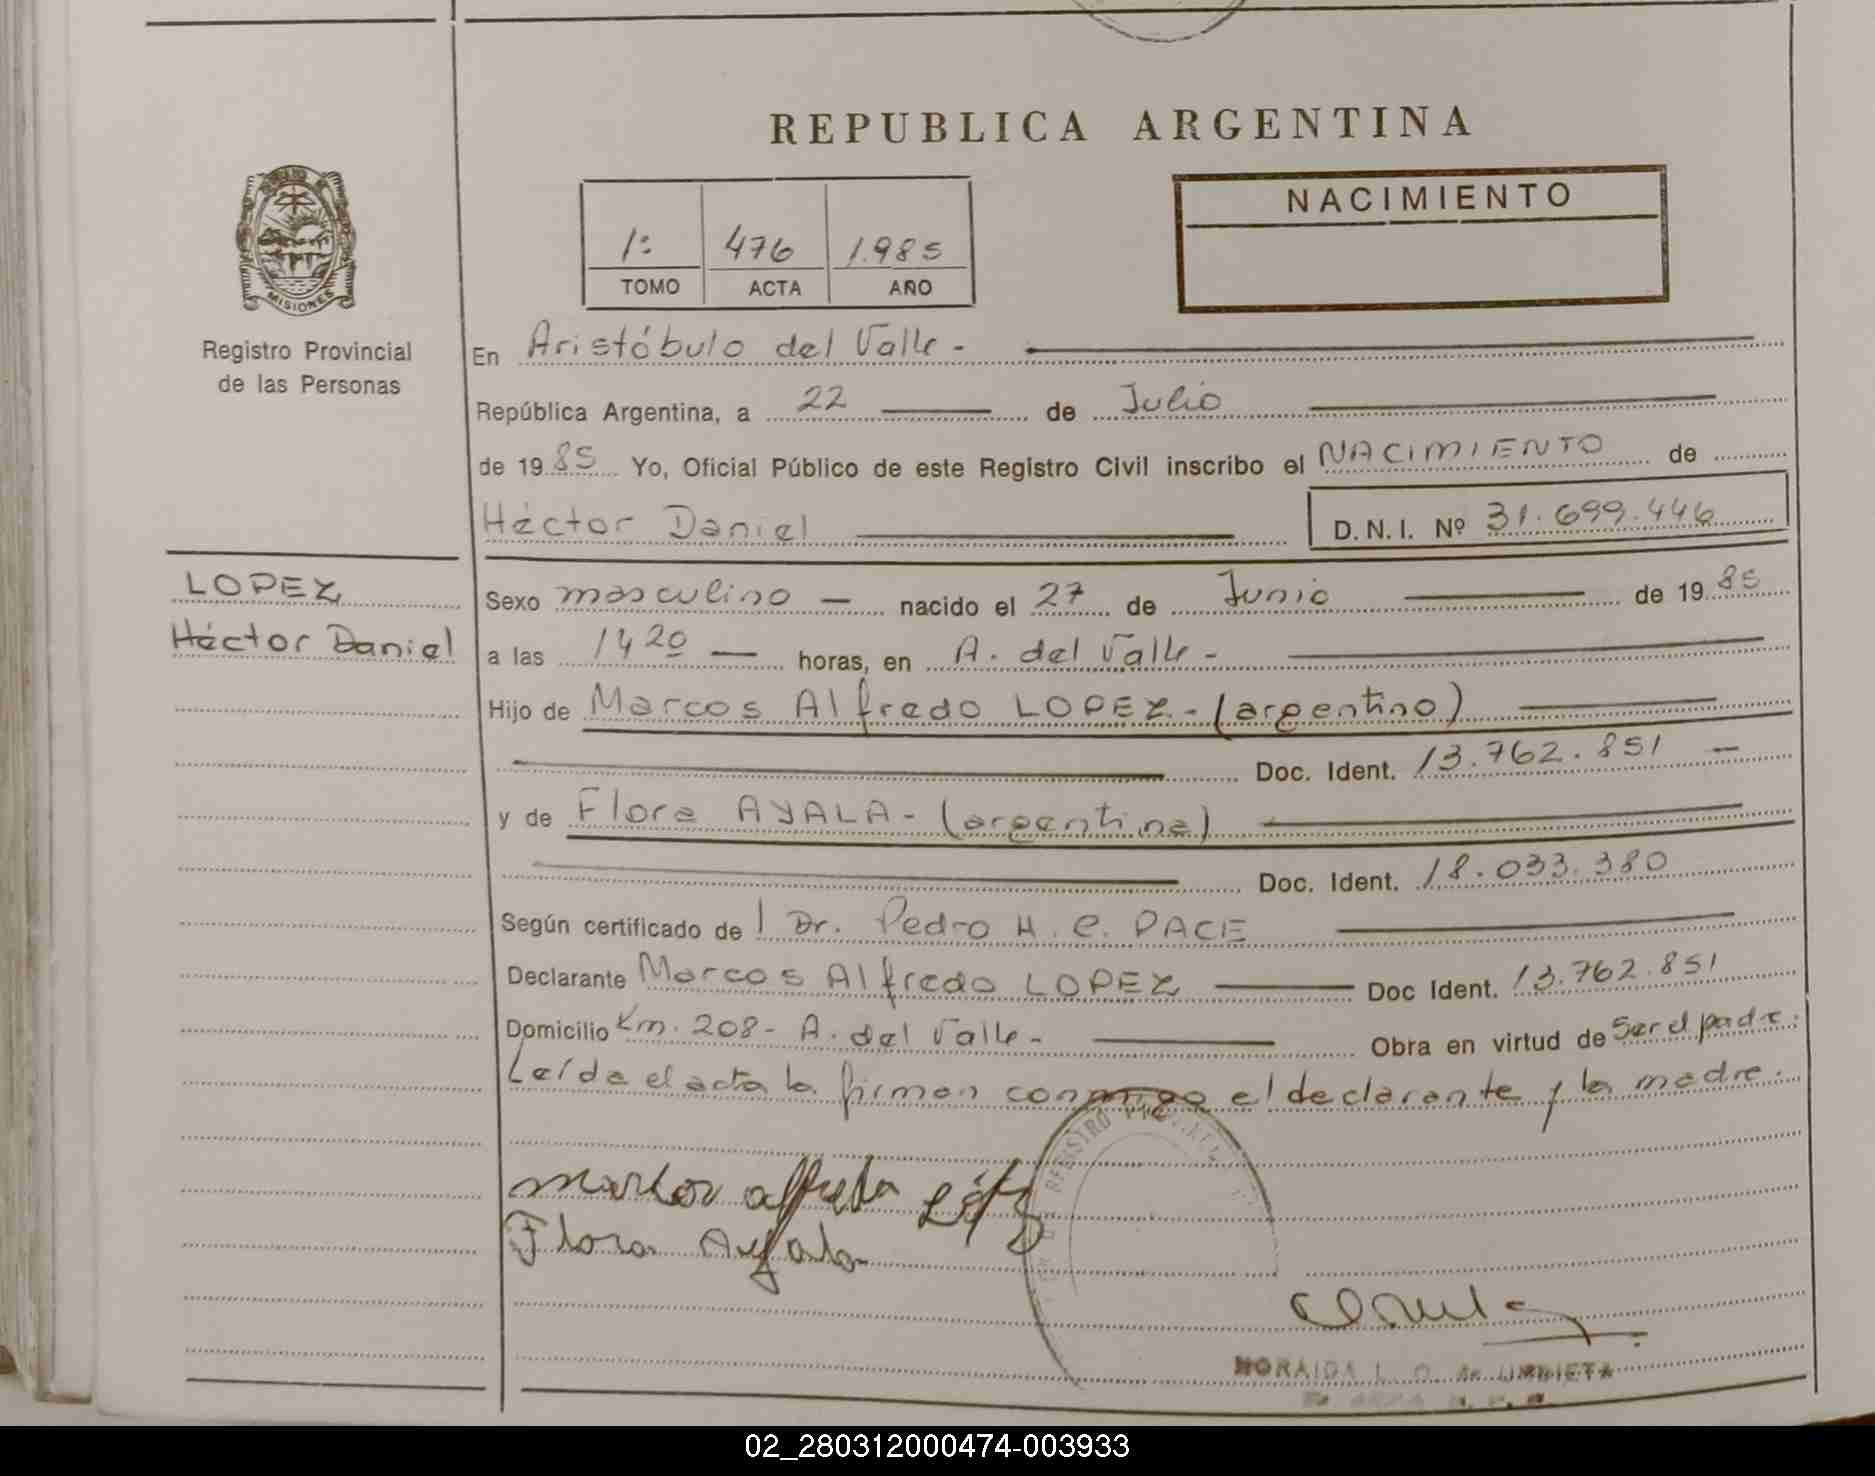 REPUBLICA ARGENTINA
NACIMIENTO
1: 476 1.985
TOMO ACTA AÑO
MISIONES
Registro Provincial
de las Personas
En Aristóbulo del Valle -
República Argentina, a 22 de Julio
de 1985 Yo, Oficial Público de este Registro Civil inscribo el NACIMIENTO de
Héctor Daniel D.N.I. Nº 31.699.446
LOPEZ
Héctor Daniel
Sexo masculino — nacido el 27 de Junio de 1985
a las 14 20 — horas, en A. del Valle -
Hijo de Marcos Alfredo LOPEZ - (argentino)
Doc. Ident. 13.762.851 —
y de Flora AYALA - (argentina)
Doc. Ident. 18.033.380
Según certificado de l Dr. Pedro H. C. PACE
Declarante Marcos Alfredo LOPEZ Doc Ident. 13.762.851
Domicilio Km. 208 - A. del Valle - Obra en virtud de Ser el padre.
Leída el acta la firman conmigo el declarante y la madre.
Marcos Alfredo López
Flora Ayala
REGISTRO
NORAIDA L. O. de URBIETA
02_280312000474-003933